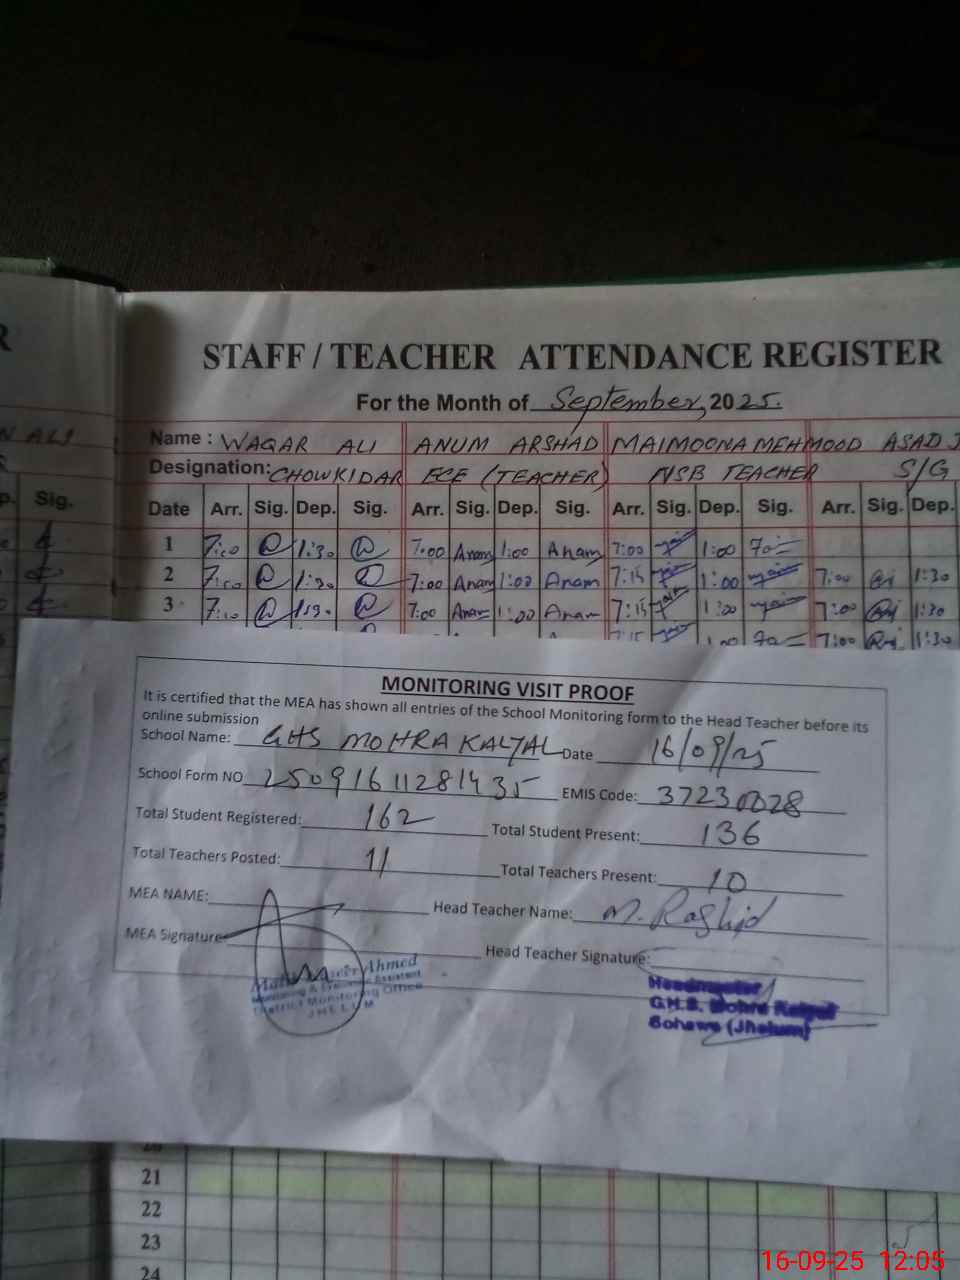 STAFF / TEACHER ATTENDANCE REGISTER
For the Month of September, 2025.
N ALI
Name : WAQAR ALI ANUM ARSHAD MAIMOONA MEHMOOD ASAD
Designation: CHOWKIDAR ECE (TEACHER) NSB TEACHER S/G
Sig. Date Arr. Sig. Dep. Sig. Arr. Sig. Dep. Sig. Arr. Sig. Dep. Sig. Arr. Sig. Dep.
1 1:30 7:00 Anam 1:00 Anam 7:00 1:00
2 1:30 7:00 Anam 1:00 Anam 7:15 1:00 7:00 1:30
3 7:00 Anam 1:00 Anam 7:15 1:00 7:00 1:30
7:15 7:00 1:30
MONITORING VISIT PROOF
It is certified that the MEA has shown all entries of the School Monitoring form to the Head Teacher before its
online submission
School Name: GHS MOHRA KALYAL Date 16/09/25
School Form NO 25091611281435 EMIS Code: 37230028
Total Student Registered: 162 Total Student Present: 136
Total Teachers Posted: 11 Total Teachers Present: 10
MEA NAME: Head Teacher Name: M. Rashid
MEA Signature Head Teacher Signature:
Ahmed
Monitoring & Evaluation Assistant
District Monitoring Office
JHELUM
Headmaster
G.H.S. Mohra Kalyal
Sohawa (Jhelum)
21
22
23
24
16-09-25 12:05